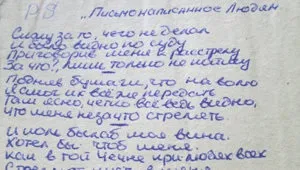 "Письмо написанное Людям.
Сижу за то, чего не делал
И было видно по суду
Приговорив меня к расстрелу
За что? Лишь только не пойму
Поднял бумаги, что на волю
И смог их всё же передать
Там ясно, чётко всё ведь видно,
Что меня незачто стрелять
И коль былаб моя вина.
Хотел бы чтоб меня.
Как в той Чечне при людях всех